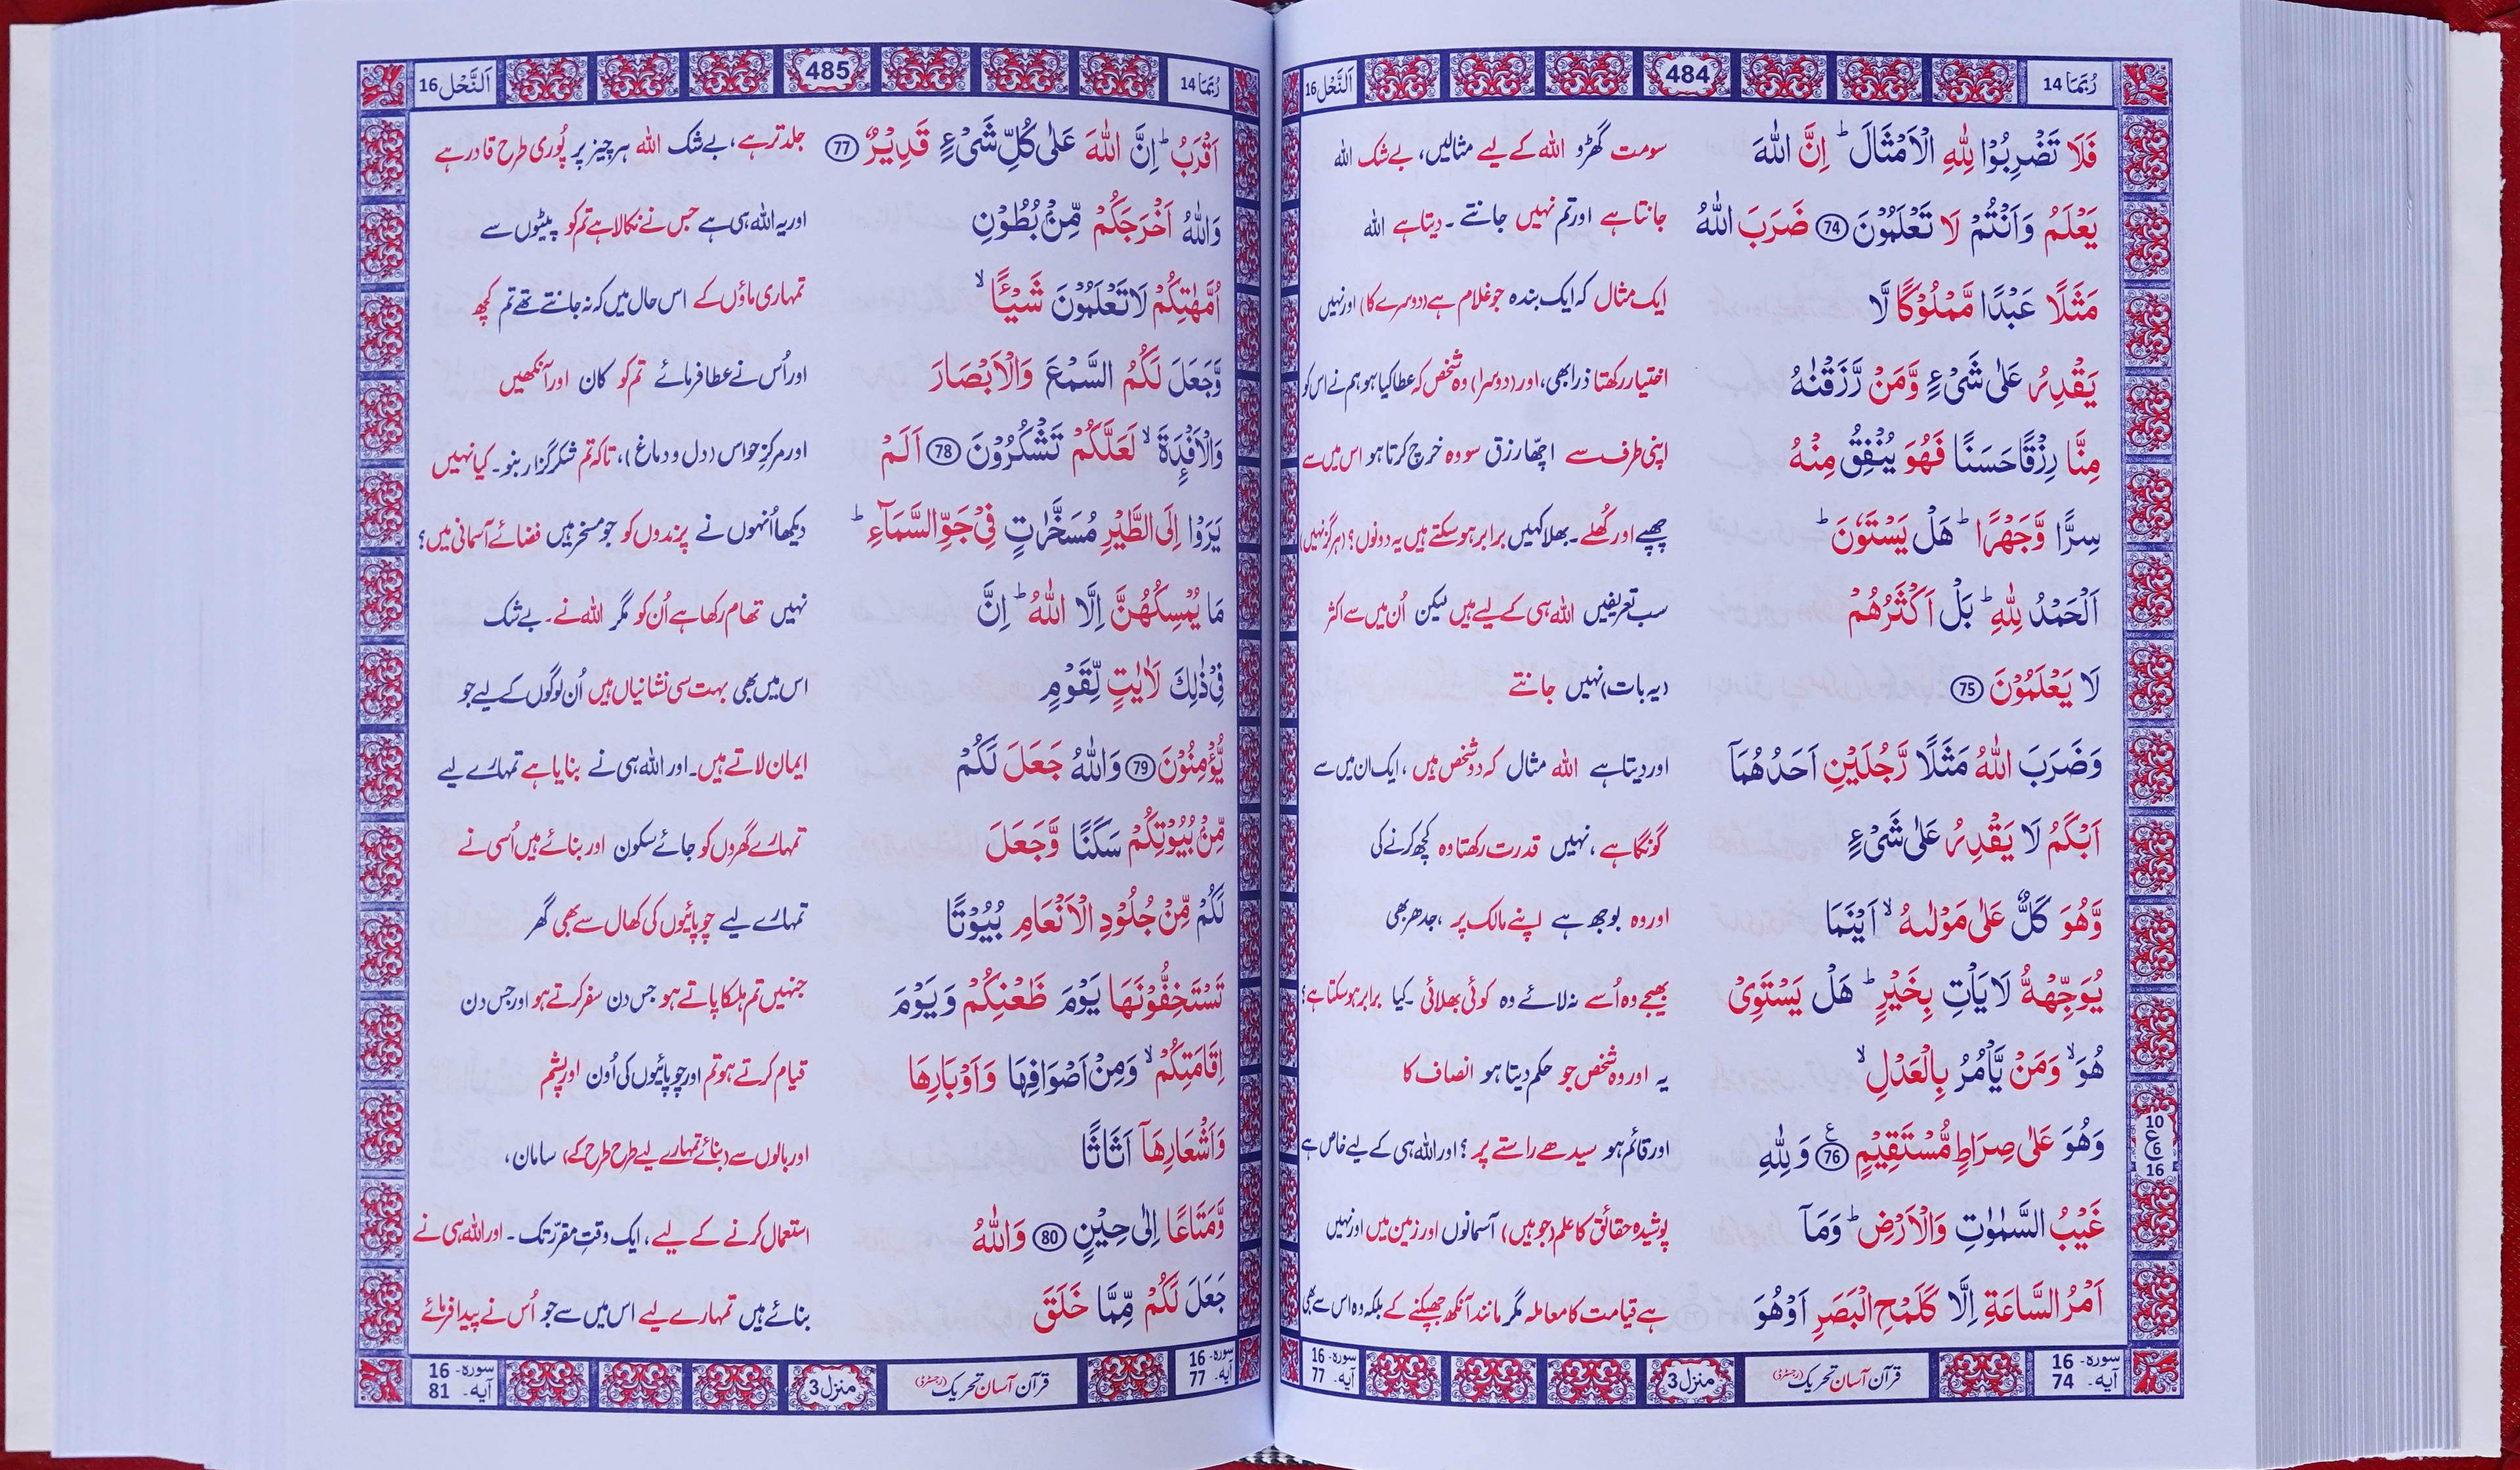 رُبَمَا 14
484
اَلنَّحْل 16
فَلَا تَضْرِبُوْا لِلّٰهِ الْاَمْثَالَ ؕ اِنَّ اللّٰهَ سومت گھڑو اللہ کے لیے مثالیں، بےشک اللہ
يَعْلَمُ وَاَنْتُمْ لَا تَعْلَمُوْنَ 74 ضَرَبَ اللّٰهُ جانتا ہے اور تم نہیں جانتے ۔ دیتا ہے اللہ
مَثَلًا عَبْدًا مَّمْلُوْكًا لَّا ایک مثال کہ ایک بندہ جو غلام ہے (دوسرے کا) اور نہیں
يَقْدِرُ عَلٰى شَىْءٍ وَّمَنْ رَّزَقْنٰهُ اختیار رکھتا ذرا بھی، اور (دوسرا) وہ شخص کہ عطا کیا ہو ہم نے اس کو
مِنَّا رِزْقًا حَسَنًا فَهُوَ يُنْفِقُ مِنْهُ اپنی طرف سے اچھا رزق سو وہ خرچ کرتا ہو اس میں سے
سِرًّا وَّجَهْرًا ؕ هَلْ يَسْتَوٗنَ ؕ چھپے اور کُھلے ۔ بھلا کہیں برابر ہو سکتے ہیں یہ دونوں؟ (ہرگز نہیں)
اَلْحَمْدُ لِلّٰهِ ؕ بَلْ اَكْثَرُهُمْ سب تعریفیں اللہ ہی کے لیے ہیں لیکن اُن میں سے اکثر
لَا يَعْلَمُوْنَ 75 (یہ بات) نہیں جانتے
وَضَرَبَ اللّٰهُ مَثَلًا رَّجُلَيْنِ اَحَدُهُمَاۤ اور دیتا ہے اللہ مثال کہ دو شخص ہیں ، ایک ان میں سے
اَبْكَمُ لَا يَقْدِرُ عَلٰى شَىْءٍ گونگا ہے ، نہیں قدرت رکھتا وہ کچھ کرنے کی
وَّهُوَ كَلٌّ عَلٰى مَوْلٰىهُ ۙ اَيْنَمَا اور وہ بوجھ ہے اپنے مالک پر ، جدھر بھی
يُوَجِّهْهُّ لَا يَاْتِ بِخَيْرٍ ؕ هَلْ يَسْتَوِىْ بھیجے وہ اُسے نہ لائے وہ کوئی بھلائی ۔ کیا برابر ہو سکتا ہے؟
هُوَ ۙ وَمَنْ يَّاْمُرُ بِالْعَدْلِ ۙ یہ اور وہ شخص جو حکم دیتا ہو انصاف کا
وَهُوَ عَلٰى صِرَاطٍ مُّسْتَقِيْمٍ 76 ع وَلِلّٰهِ اور قائم ہو سیدھے راستے پر ؟ اور اللہ ہی کے لیے خاص ہے
10
ع
6
16
غَيْبُ السَّمٰوٰتِ وَالْاَرْضِ ؕ وَمَاۤ پوشیدہ حقائق کا علم (جو ہیں) آسمانوں اور زمین میں اور نہیں
اَمْرُ السَّاعَةِ اِلَّا كَلَمْحِ الْبَصَرِ اَوْ هُوَ ہے قیامت کا معاملہ مگر مانند آنکھ جھپکنے کے بلکہ وہ اس سے بھی
سورہ- 16
آیہ- 74
قرآن آسان تحریک (رجسٹرڈ)
منزل 3
سورہ- 16
آیہ- 77
رُبَمَا 14
485
اَلنَّحْل 16
اَقْرَبُ ؕ اِنَّ اللّٰهَ عَلٰى كُلِّ شَىْءٍ قَدِيْرٌ 77 جلد تر ہے ، بےشک اللہ ہر چیز پر پُوری طرح قادر ہے
وَاللّٰهُ اَخْرَجَكُمْ مِّنْۢ بُطُوْنِ اور یہ اللہ ہی ہے جس نے نکالا ہے تم کو پیٹوں سے
اُمَّهٰتِكُمْ لَا تَعْلَمُوْنَ شَيْـًٔا ۙ تمہاری ماؤں کے اس حال میں کہ نہ جانتے تھے تم کچھ
وَّجَعَلَ لَكُمُ السَّمْعَ وَالْاَبْصَارَ اور اُس نے عطا فرمائے تم کو کان اور آنکھیں
وَالْاَفْـِٕدَةَ ۙ لَعَلَّكُمْ تَشْكُرُوْنَ 78 اَلَمْ اور مرکزِ حواس (دل و دماغ)، تاکہ تم شکر گزار بنو ۔ کیا نہیں
يَرَوْا اِلَى الطَّيْرِ مُسَخَّرٰتٍ فِىْ جَوِّ السَّمَآءِ ؕ دیکھا اُنہوں نے پرندوں کو جو مسخر ہیں فضائے آسمانی میں؟
مَا يُمْسِكُهُنَّ اِلَّا اللّٰهُ ؕ اِنَّ نہیں تھام رکھا ہے اُن کو مگر اللہ نے ۔ بےشک
فِىْ ذٰلِكَ لَاٰيٰتٍ لِّقَوْمٍ اس میں بھی بہت سی نشانیاں ہیں اُن لوگوں کے لیے جو
يُّؤْمِنُوْنَ 79 وَاللّٰهُ جَعَلَ لَكُمْ ایمان لاتے ہیں ۔ اور اللہ ہی نے بنایا ہے تمہارے لیے
مِّنْۢ بُيُوْتِكُمْ سَكَنًا وَّجَعَلَ تمہارے گھروں کو جائے سکون اور بنائے ہیں اُسی نے
لَكُمْ مِّنْ جُلُوْدِ الْاَنْعَامِ بُيُوْتًا تمہارے لیے چوپائیوں کی کھال سے بھی گھر
تَسْتَخِفُّوْنَهَا يَوْمَ ظَعْنِكُمْ وَيَوْمَ جنہیں تم ہلکا پاتے ہو جس دن سفر کرتے ہو اور جس دن
اِقَامَتِكُمْ ۙ وَمِنْ اَصْوَافِهَا وَاَوْبَارِهَا قیام کرتے ہو تم اور چوپائیوں کی اُون اور پشم
وَاَشْعَارِهَاۤ اَثَاثًا اور بالوں سے (بنائے تمہارے لیے طرح طرح کے) سامان ،
وَّمَتَاعًا اِلٰى حِيْنٍ 80 وَاللّٰهُ استعمال کرنے کے لیے ، ایک وقتِ مقرّر تک ۔ اور اللہ ہی نے
جَعَلَ لَكُمْ مِّمَّا خَلَقَ بنائے ہیں تمہارے لیے اس میں سے جو اُس نے پیدا فرمائے
سورہ- 16
آیہ- 77
قرآن آسان تحریک (رجسٹرڈ)
منزل 3
سورہ- 16
آیہ- 81